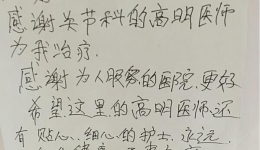 感谢关节科的高明医师
为我治疗.
感谢为人眼家的医院.更好
希望这里的高明医师还
有贴心、细心的护士.永远